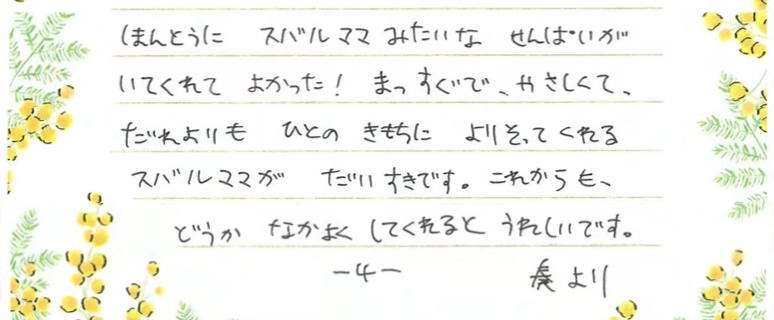 ほんとうに スバルママ みたいな せんぱいが
いてくれて よかった! まっすぐで、やさしくて、
だれよりも ひとの きもちに よりそってくれる
スバルママが だいすきです。これからも、
どうか なかよく してくれると うれしいです。
-4- 奏より